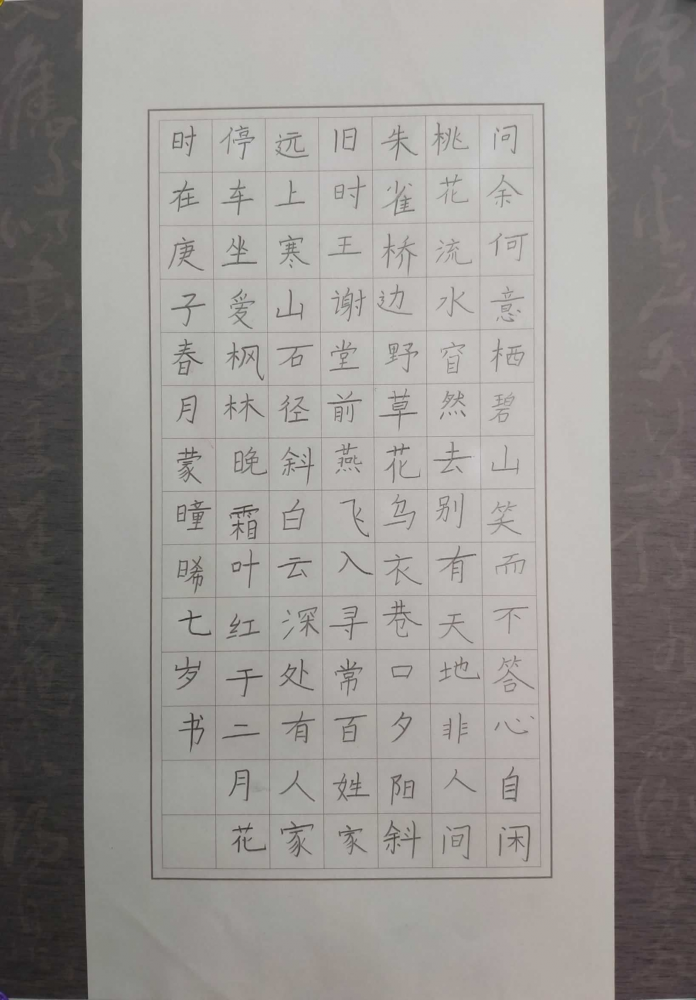 问余何意栖碧山笑而不答心自闲
桃花流水窅然去别有天地非人间
朱雀桥边野草花乌衣巷口夕阳斜
旧时王谢堂前燕飞入寻常百姓家
远上寒山石径斜白云深处有人家
停车坐爱枫林晚霜叶红于二月花
时在庚子春月蒙曈晞七岁书